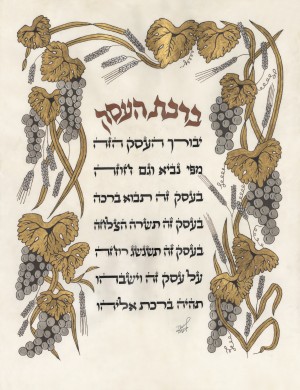 ברכת העסק
יבורך העסק הזה
מפי נביא וגם חוזה
בעסק זה תבוא ברכה
בעסק זה תשרה הצלחה
בעסק זה תשגשג רווחה
על עסק זה ויושביהו
תהיה ברכת אליהו